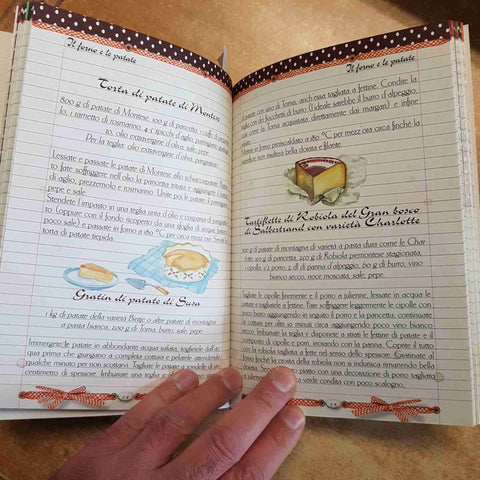 Il forno e le patate
Torta di patate di Montese
800 g di patate di Montese, 100 g di pancetta, 1 ciuffo di prezzemo-
lo, 1 rametto di rosmarino, 4-5 spicchi d'aglio, parmigiano grattugia-
to, olio extravergine d'oliva, sale, pepe
Per la teglia: olio extravergine d'oliva, pangrattato
Lessate e passate le patate allo schiacciapatate.
to fate soffriggere nell'olio la pancetta tritata e aggiungete
di aglio, prezzemolo e rosmarino. Unite poi le patate, il parmigiano,
pepe e sale.
Stendete l'impasto in una teglia unta d'olio e cosparsa di pangratta-
to (oppure con il fondo ricoperto da una sfoglia
poco sale) e passate in forno a 180 °C per circa mezz'ora. Servite la
torta di patate tiepida.
Gratin di patate di Susa
1 kg di patate della varietà Bintje o altre patate di montagna
a pasta bianca, 200 g di Toma, burro, sale, pepe
Immergete le patate in abbondante acqua salata, toglietele dall'ac-
qua prima che giungano a completa cottura e pelatele
qualche minuto per scottarle. Tagliate le patate a rondelle di un
centimetro di spessore. Imburrate una teglia e
Il forno e le patate
patate con uno di Toma, anch'essa tagliata a fettine. Condite la
teglia con fiocchetti di burro (l'ideale sarebbe il burro d'alpeggio,
come la Toma acquistata direttamente dai margari) e infine
pepate.
Infornate in forno preriscaldato a 180 °C per mezz'ora circa finché la
superficie non risulterà bella dorata e filante.
Tartiflette di Robiola del Gran bosco
di Salbertrand con varietà Charlotte
300 g di patate di montagna di varietà a pasta dura come le Char-
lotte, 100 g di pancetta, 240 g di Robiola piemontese stagionata,
1 cipolla, 1/2 porro, 2 dl di panna d'alpeggio, 60 g di burro, vino
bianco secco, noce moscata, sale, pepe
Tagliate le cipolle finemente e il porro a julienne, lessate in acqua le
patate e tagliatele a fettine. Fate soffriggere leggermente le cipolle con
poco burro aggiungendo in seguito il porro e la pancetta, continuate
per altri 10 minuti circa aggiungendo poco vino bianco
secco. Imburrate una teglia e disponete a strati le fettine di patate e
il composto di cipolle, irrorando il tutto con la panna. Coprite il tutto
con la robiola tagliata a fette nel senso dello spessore. Gratinate al
forno finché la crosta della robiola non si indurisca rimanendo bella
Servite nel piatto, con una decorazione di porro tagliata
a verde condita con poco scalogno.